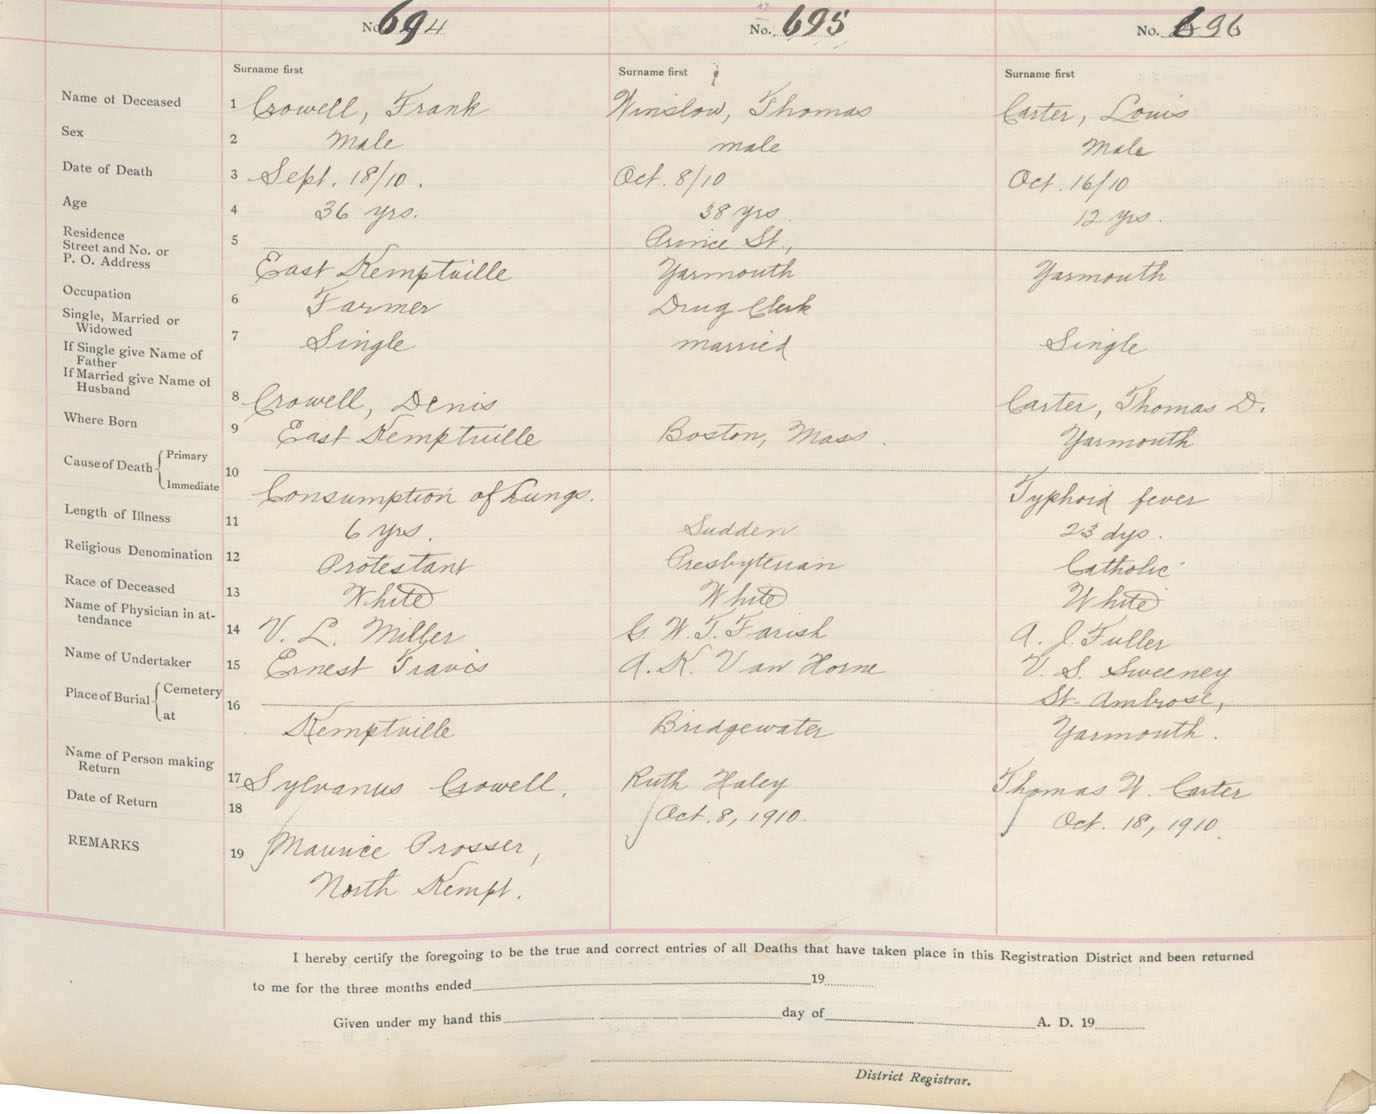 No. 694 No. 695 No. 696
Surname first Surname first Surname first
Name of Deceased 1 Crowell, Frank Winslow, Thomas Carter, Louis
Sex 2 Male male Male
Date of Death 3 Sept. 18/10. Oct. 8/10 Oct. 16/10
Age 4 36 yrs. 38 yrs. 12 yrs.
Residence 5 Prince St.,
Street and No. or
P. O. Address East Kemptville Yarmouth Yarmouth
Occupation 6 Farmer Drug Clerk
Single, Married or
Widowed 7 Single married Single
If Single give Name of
Father
If Married give Name of
Husband 8 Crowell, Denis Carter, Thomas D.
Where Born 9 East Kemptville Boston, Mass. Yarmouth
Cause of Death Primary 10
Immediate Consumption of Lungs. Typhoid fever
Length of Illness 11 6 yrs. Sudden 23 dys.
Religious Denomination 12 Protestant Presbyterian Catholic
Race of Deceased 13 White White White
Name of Physician in at-
tendance 14 V. L. Miller G. W. T. Farish A. J. Fuller
Name of Undertaker 15 Ernest Travis A. K. Van Horne V. S. Sweeney
Place of Burial Cemetery 16 St. Ambrose,
at Kemptville Bridgewater Yarmouth.
Name of Person making
Return 17 Sylvanus Crowell, Ruth Haley Thomas W. Carter
Date of Return 18 Oct. 8, 1910. Oct. 18, 1910.
REMARKS 19 Maurice Prosser,
North Kempt.
I hereby certify the foregoing to be the true and correct entries of all Deaths that have taken place in this Registration District and been returned
to me for the three months ended 19
Given under my hand this day of A. D. 19
District Registrar.